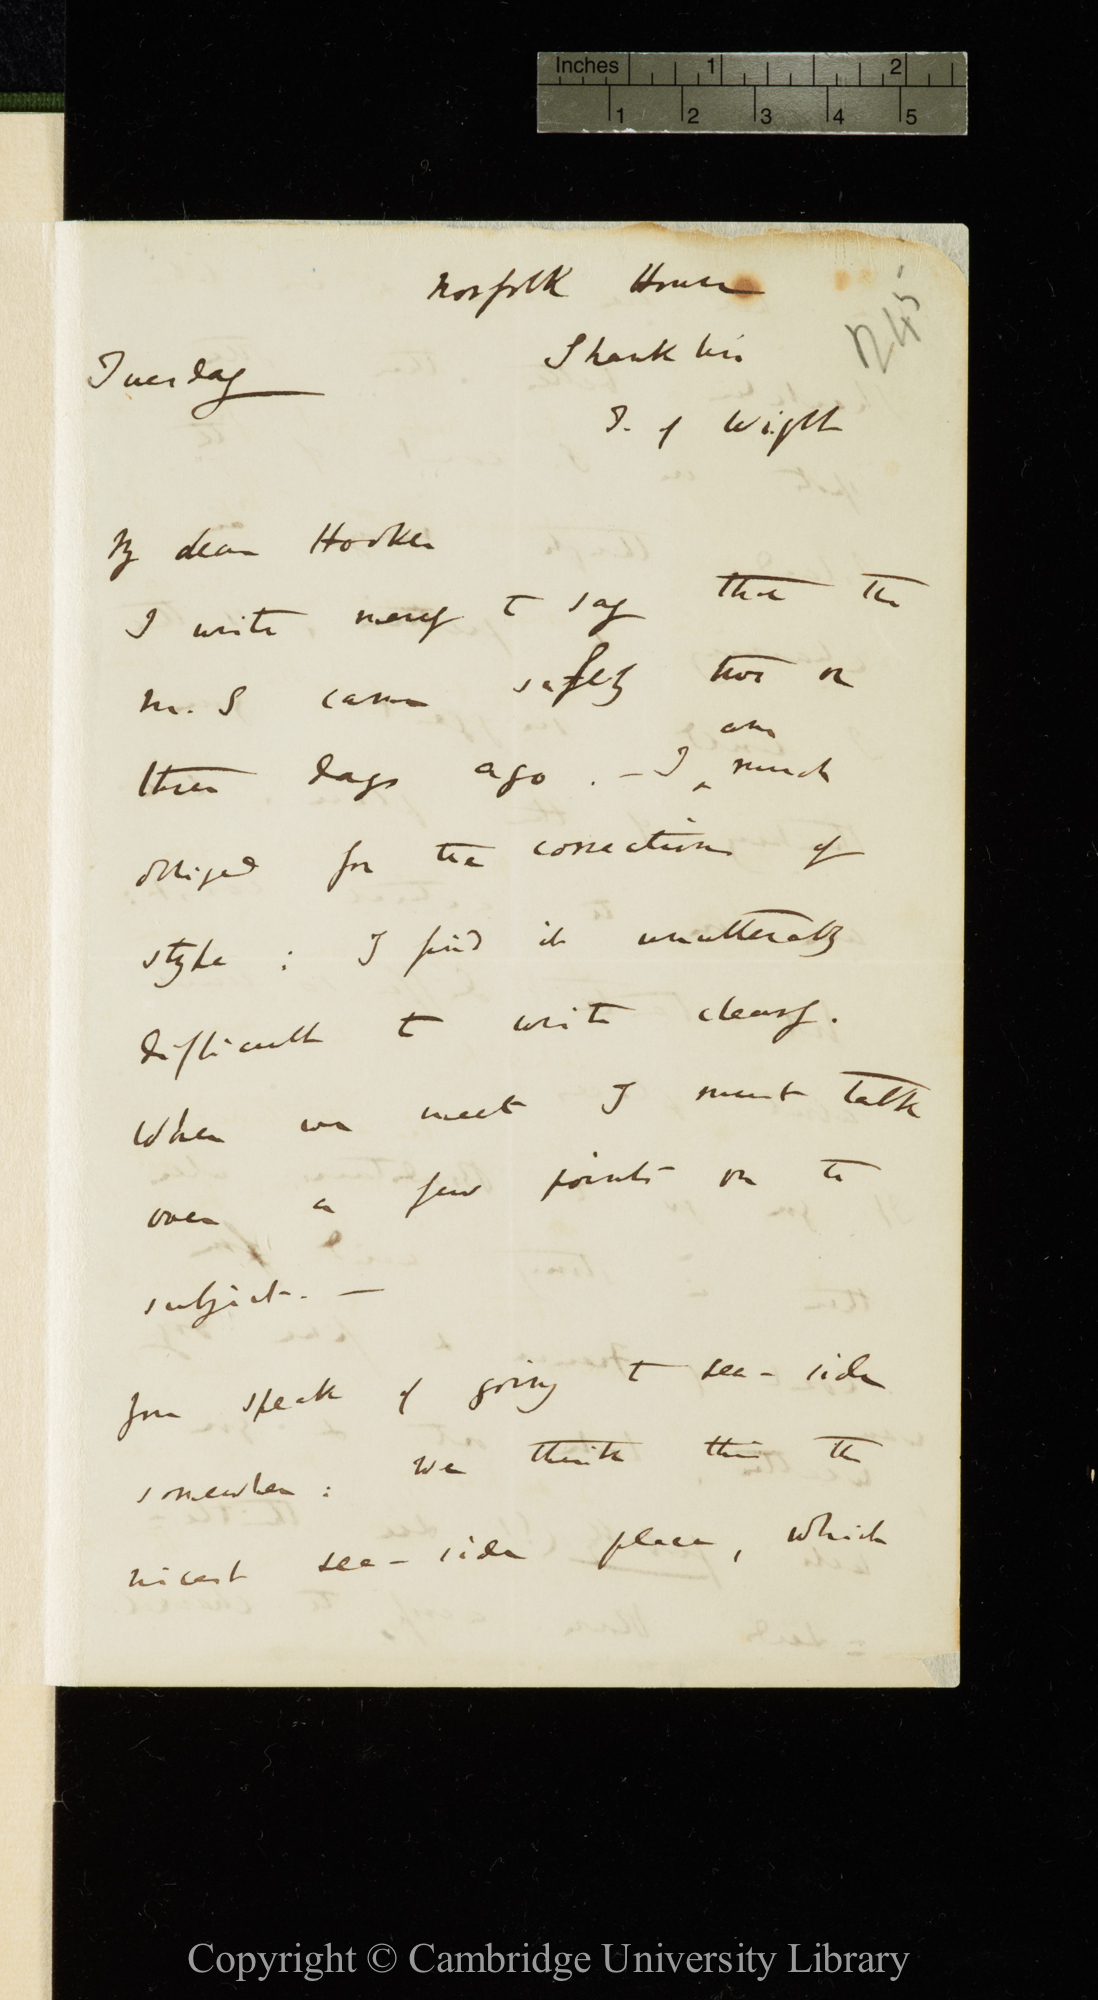 Inches 1 2
1 2 3 4 5
245
Norfolk House
Shanklin
Tuesday
I. of Wight
My dear Hooker
I write merely to say that the
M.S came safely two or
am
three days ago. — I ^ much
obliged for the corrections of
style: I find it unutterably
difficult to write clearly.
When we meet I must talk
over a few points on the
subject. —
You speak of going to sea-side
somewhere: we think this the
nicest sea-side place, which
Copyright © Cambridge University Library